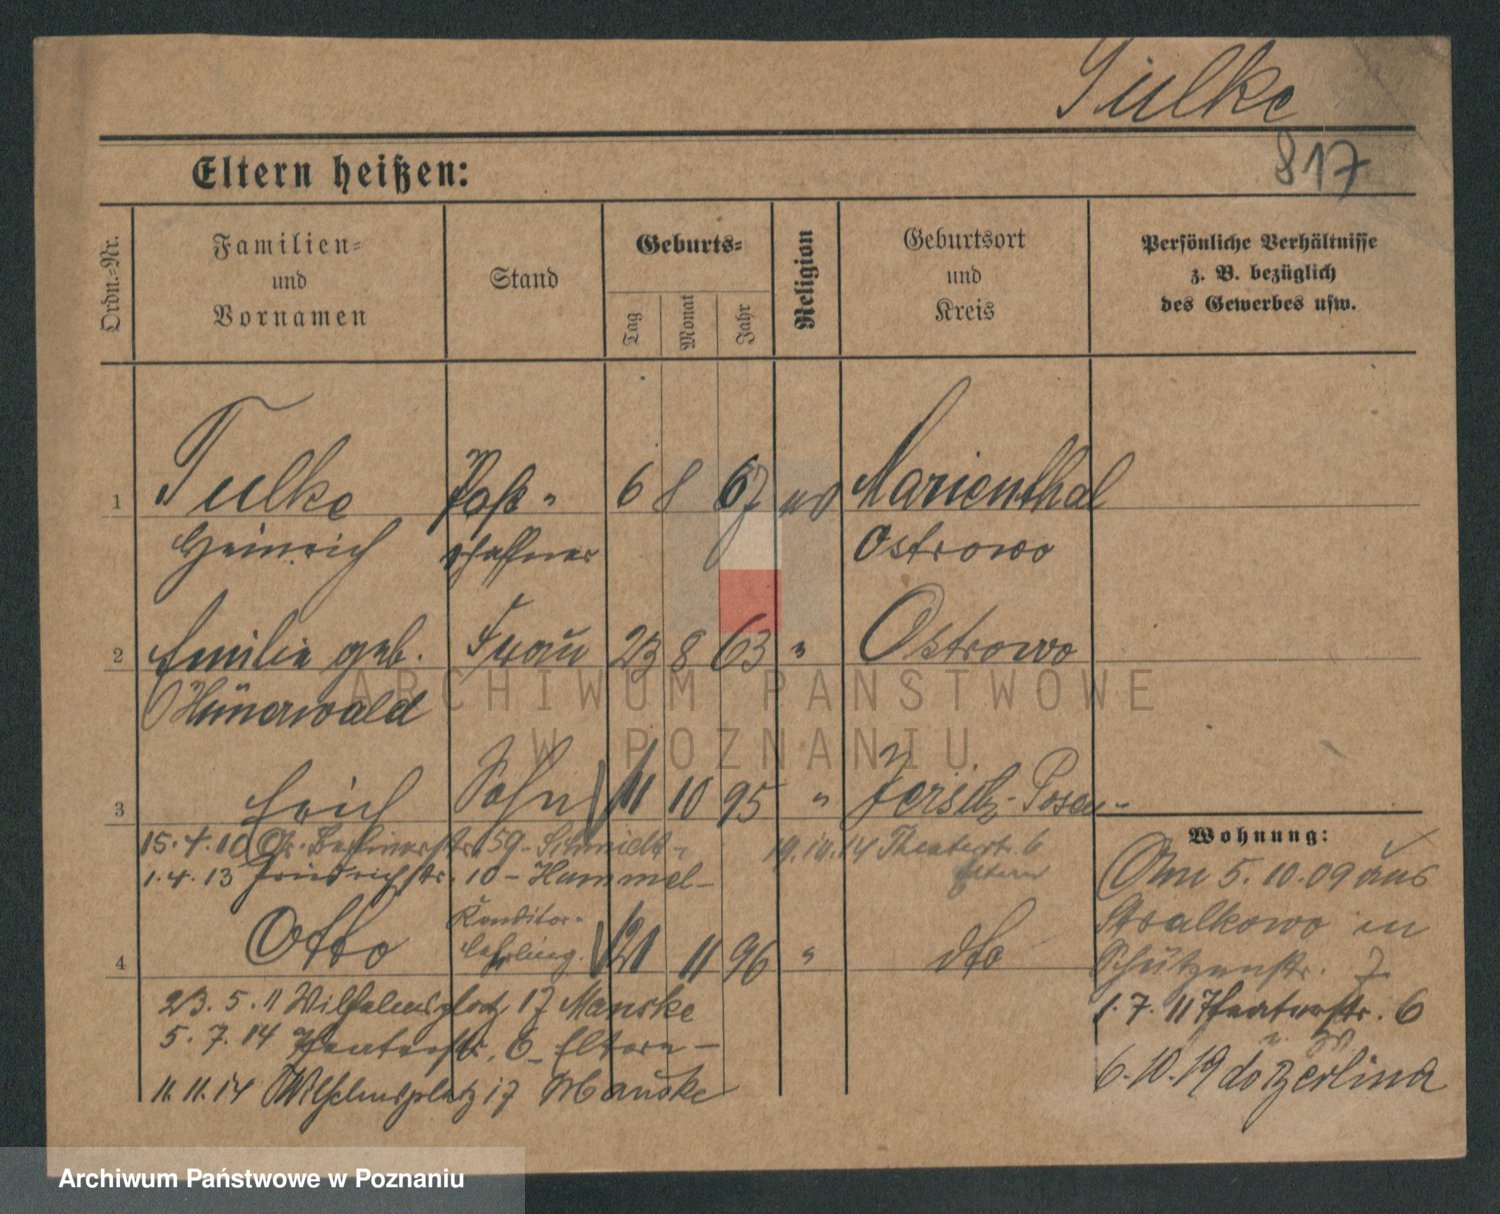 Tulke
817
Eltern heißen:
Ordn.-Nr.
Familien-
und
Vornamen
Stand
Geburts-
Tag
Monat
Jahr
Religion
Geburtsort
und
Kreis
Persönliche Verhältnisse
z. B. bezüglich
des Gewerbes usw.
1 Tulke Post- 6 8 67 Marienthal
Heinrich schaffner Ostrowo
2 Emilie geb. Frau 23 8 63 " Ostrowo
Hünerwald
3 Erich Sohn 11 10 95 " Jersitz-Posen-
15.4.10 Gr. Berlinerstr. 59 - Schmidt - 14 Theaterstr. 6
Eltern
1.4.13 Friedrichstr. 10 - Hummel -
4 Otto Konditor- 21 11 96 " dto
Lehrling.
23.5.11 Wilhelmsplatz 17 Manske
5.7.14 Theaterstr. 6 Eltern -
11.11.14 Wilhelmsplatz 17 Manske
Wohnung:
5.10.09 aus
Stralkowo in
Schützenstr. 7
1.7.11 Theaterstr. 6
6.10.19 do
ARCHIWUM PAŃSTWOWE
W POZNANIU
Archiwum Państwowe w Poznaniu